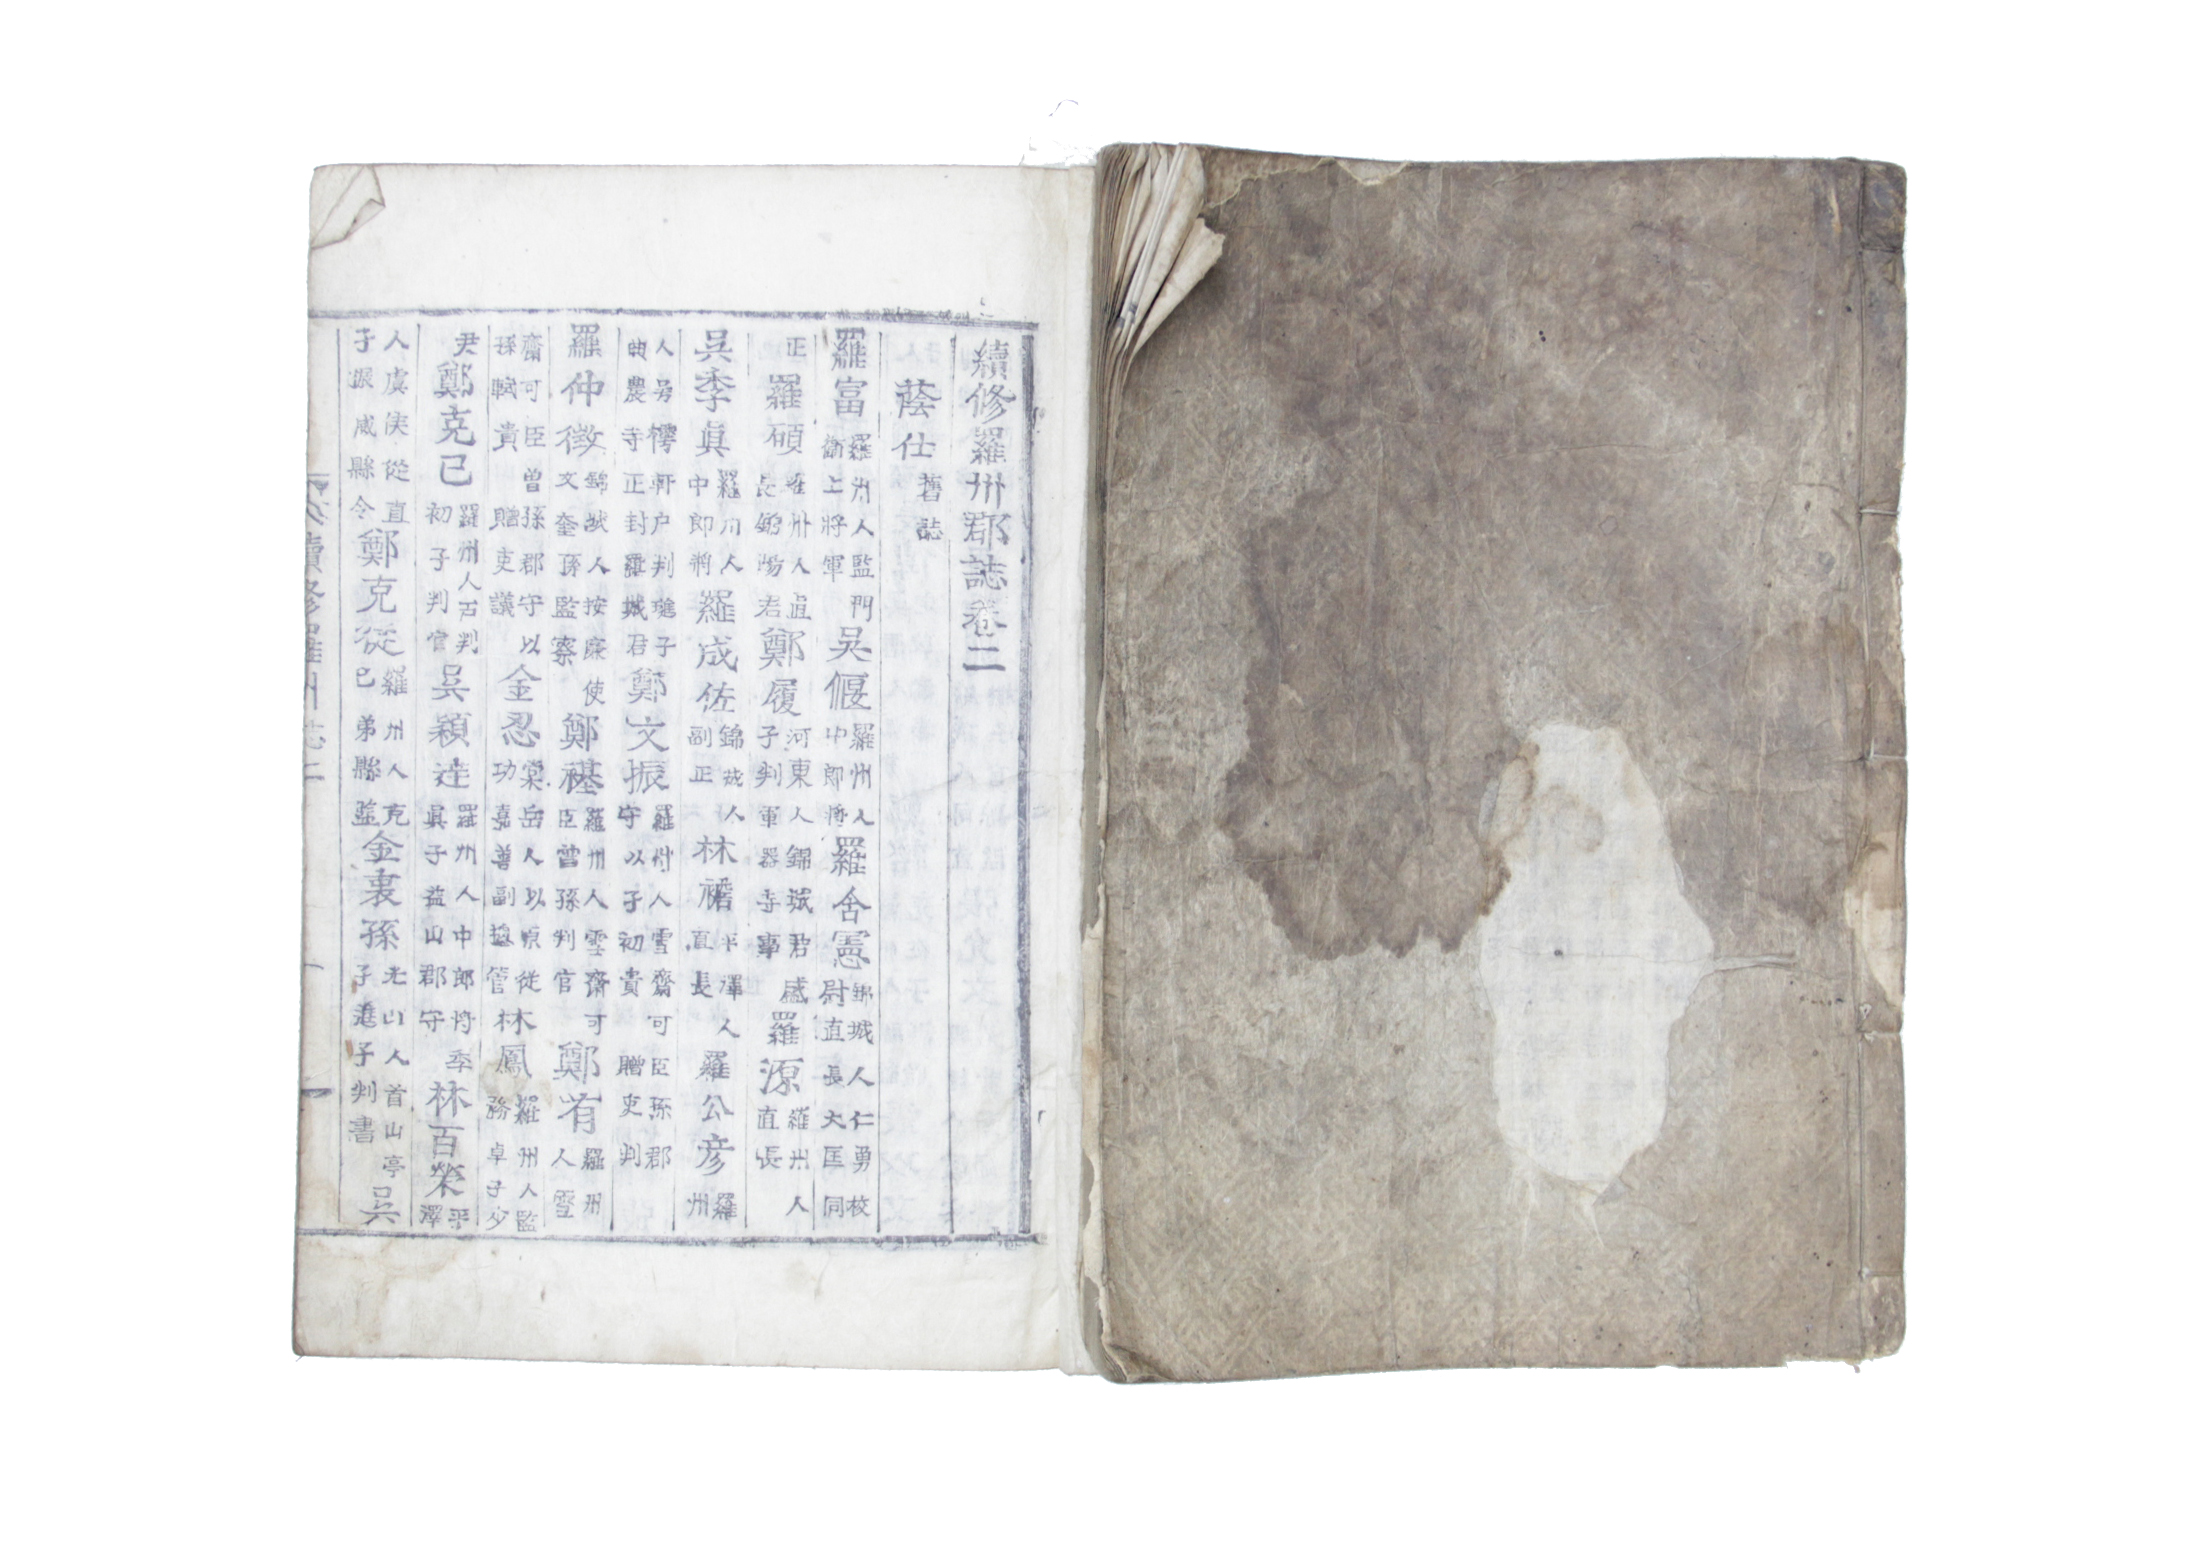 續修羅州郡誌卷二
蔭仕 舊誌
羅富 羅州人監門衛上將軍 吳偃 羅州人中郎將 羅舍憲 錦城人仁勇校尉直長大匡同
正 羅碩 羅州人直長錦陽君 鄭履 河東人錦城君盛子判軍器寺事 羅源 羅州人直長
吳季眞 羅州人中郎將 羅成佐 錦城人副正 林襜 平澤人直長 羅公彦 羅州
人号樗軒戶判璉子典農寺正封羅城君 鄭文振 羅州人雪齋可臣孫郡守以子初貴贈吏判
羅仲徵 錦城人按廉使文奎孫監察 鄭禥 羅州人雪齋可臣曾孫判官 鄭有 羅州人雪
齋可臣曾孫郡守以孫軾貴贈吏議 金忍 棠岳人以原從功嘉善副摠管 林鳳 羅州人監務卓子少
尹 鄭克己 羅州人吉判初子判官 吳穎達 羅州人中郎將季眞子益山郡守 林百榮 平澤
人虞侯從直子振威縣令 鄭克從 羅州人克己弟縣監 金裏孫 光山人首山亭子進子判書 吳
續修羅州誌二